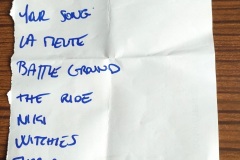 YOUR SONG
LA MEUTE
BATTLE GROUND
THE RIDE
NIKI
WITCHIES